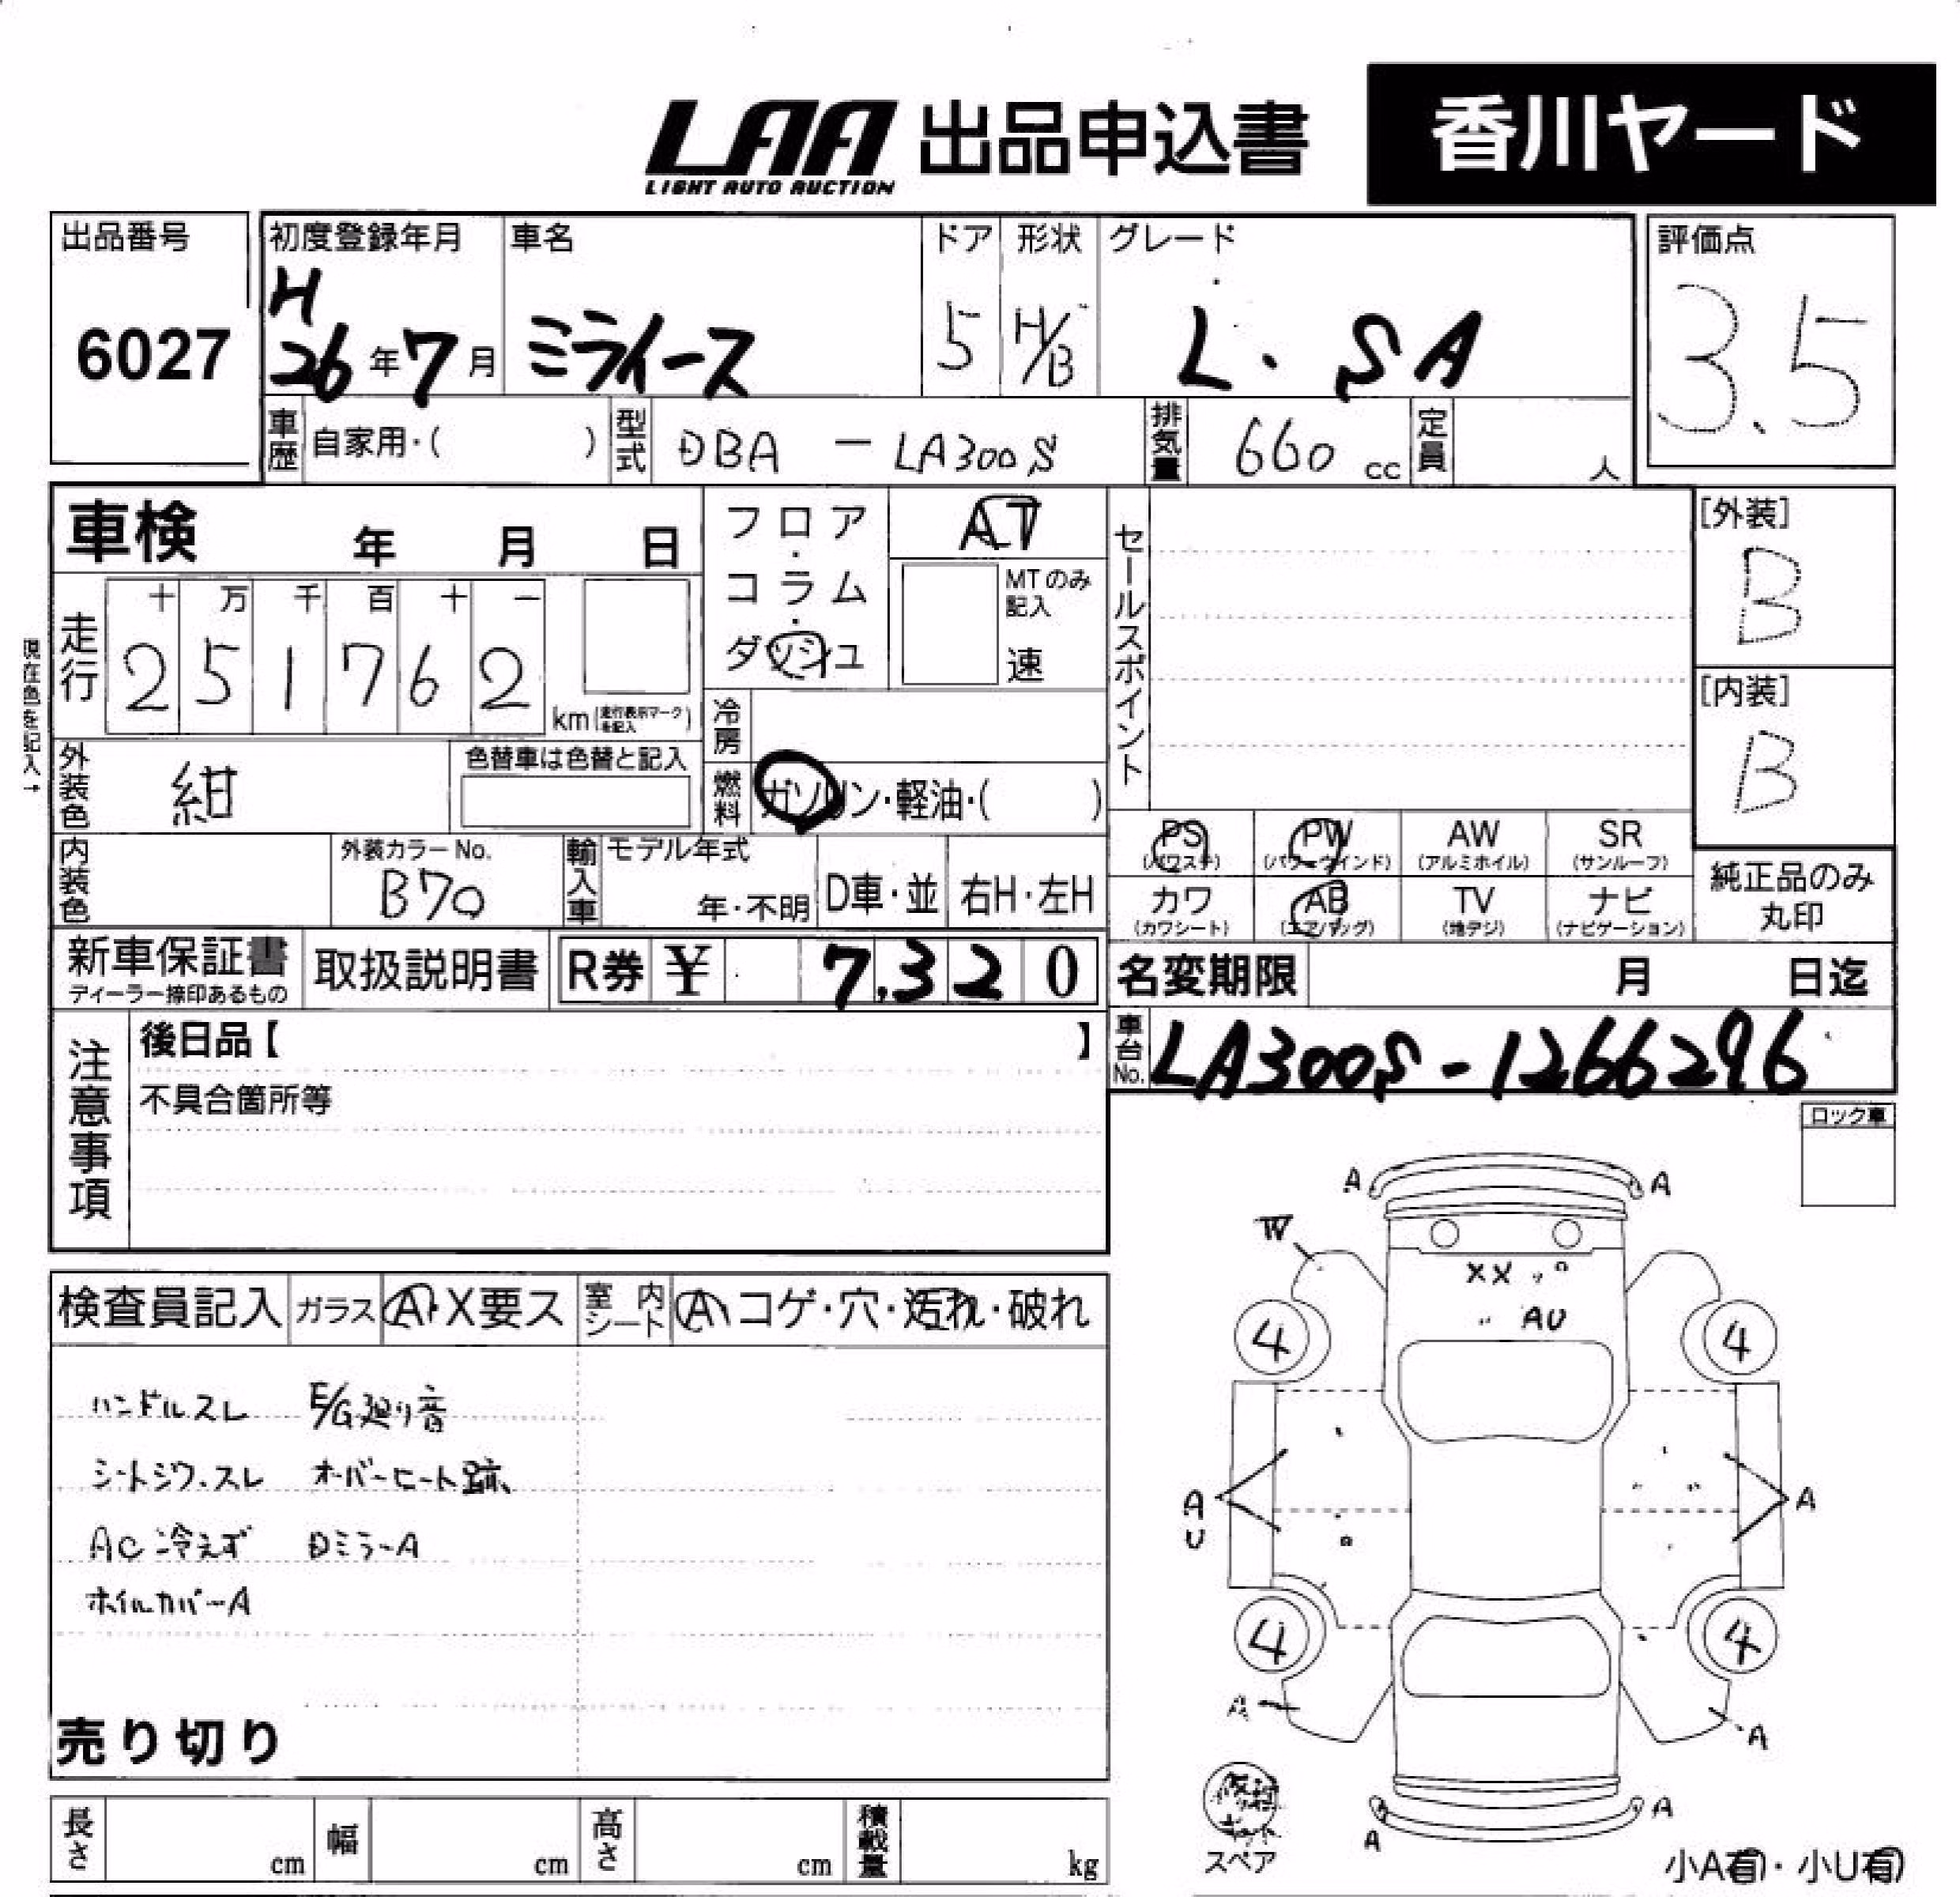 LAA 出品申込書 香川ヤード
LIGHT AUTO AUCTION
出品番号 初度登録年月 車名 ドア 形状 グレード 評価点
6027 H 26年7月 ミライース 5 H/B L・SA 3.5
車歴 自家用・( ) 型式 DBA - LA300S 排気量 660 cc 定員 人
車検 年 月 日
フロア・コラム・ダッシュ AT
MTのみ記入
速
セールスポイント
[外装]
B
走行 十 万 千 百 十 一
2 5 1 7 6 2 km (走行表示マークを記入)
現在色を記入→
[内装]
B
冷房
外装色 紺 色替車は色替と記入
燃料 ガソリン・軽油・( )
PS (パワステ) PW (パワーウィンド) AW (アルミホイル) SR (サンルーフ)
カワ (カワシート) AB (エアバッグ) TV (地デジ) ナビ (ナビゲーション)
純正品のみ
丸印
内装色 外装カラーNo. B70 輸入車 モデル年式 年・不明 D車・並 右H・左H
新車保証書 ディーラー捺印あるもの 取扱説明書 R券 ¥ 7,320
名変期限 月 日迄
車台No. LA300S-1266296
注意事項
後日品【 】
不具合箇所等
ロック車
検査員記入 ガラス A・X要ス 室内シート A コゲ・穴・汚れ・破れ
ハンドルスレ E/G廻り音
シートシワ、スレ オーバーヒート跡
AC冷えず Dミラー A
ホイルカバーA
売り切り
A A
W
XX
AU
4 4
A
U
A
4 4
A A
A A
スペア
小A有・小U有
長さ cm 幅 cm 高さ cm 積載量 kg